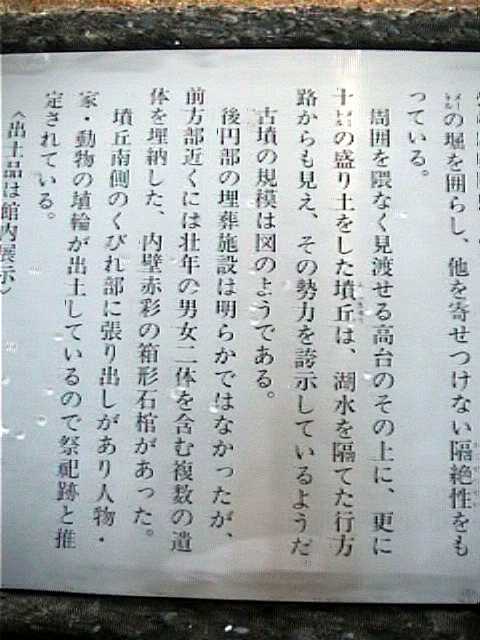 ㍍の堀を囲らし、他を寄せつけない隔絶性をも
っている。
周囲を隈なく見渡せる高台のその上に、更に
十㍍の盛り土をした墳丘は、湖水を隔てた行方
路からも見え、その勢力を誇示しているようだ。
古墳の規模は図のようである。
後円部の埋葬施設は明らかではなかったが、
前方部近くには壮年の男女二体を含む複数の遺
体を埋納した、内壁赤彩の箱形石棺があった。
墳丘南側のくびれ部に張り出しがあり人物・
家・動物の埴輪が出土しているので祭祀跡と推
定されている。
〈出土品は館内展示〉